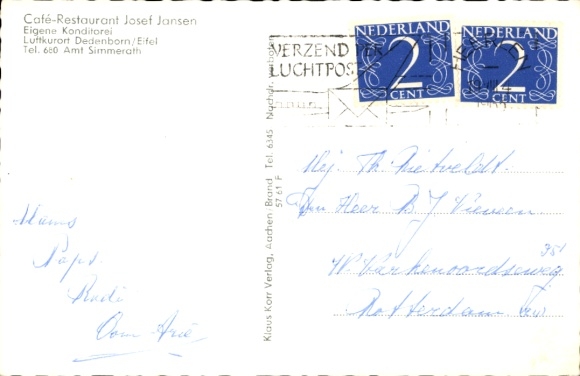 Café-Restaurant Josef Jansen
Eigene Konditorei
Luftkurort Dedenborn/Eifel
Tel. 680 Amt Simmerath
VERZEND PER
LUCHTPOST
NEDERLAND
2
CENT
NEDERLAND
2
CENT
Klaus Korr Verlag, Aachen-Brand Tel. 6345 Nachdr. verboten
57 61 F
Th. Rietveldt.
Den Heer B J
351
W. Varkenoordseweg
Rotterdam
Mams
Paps
Oom Arie